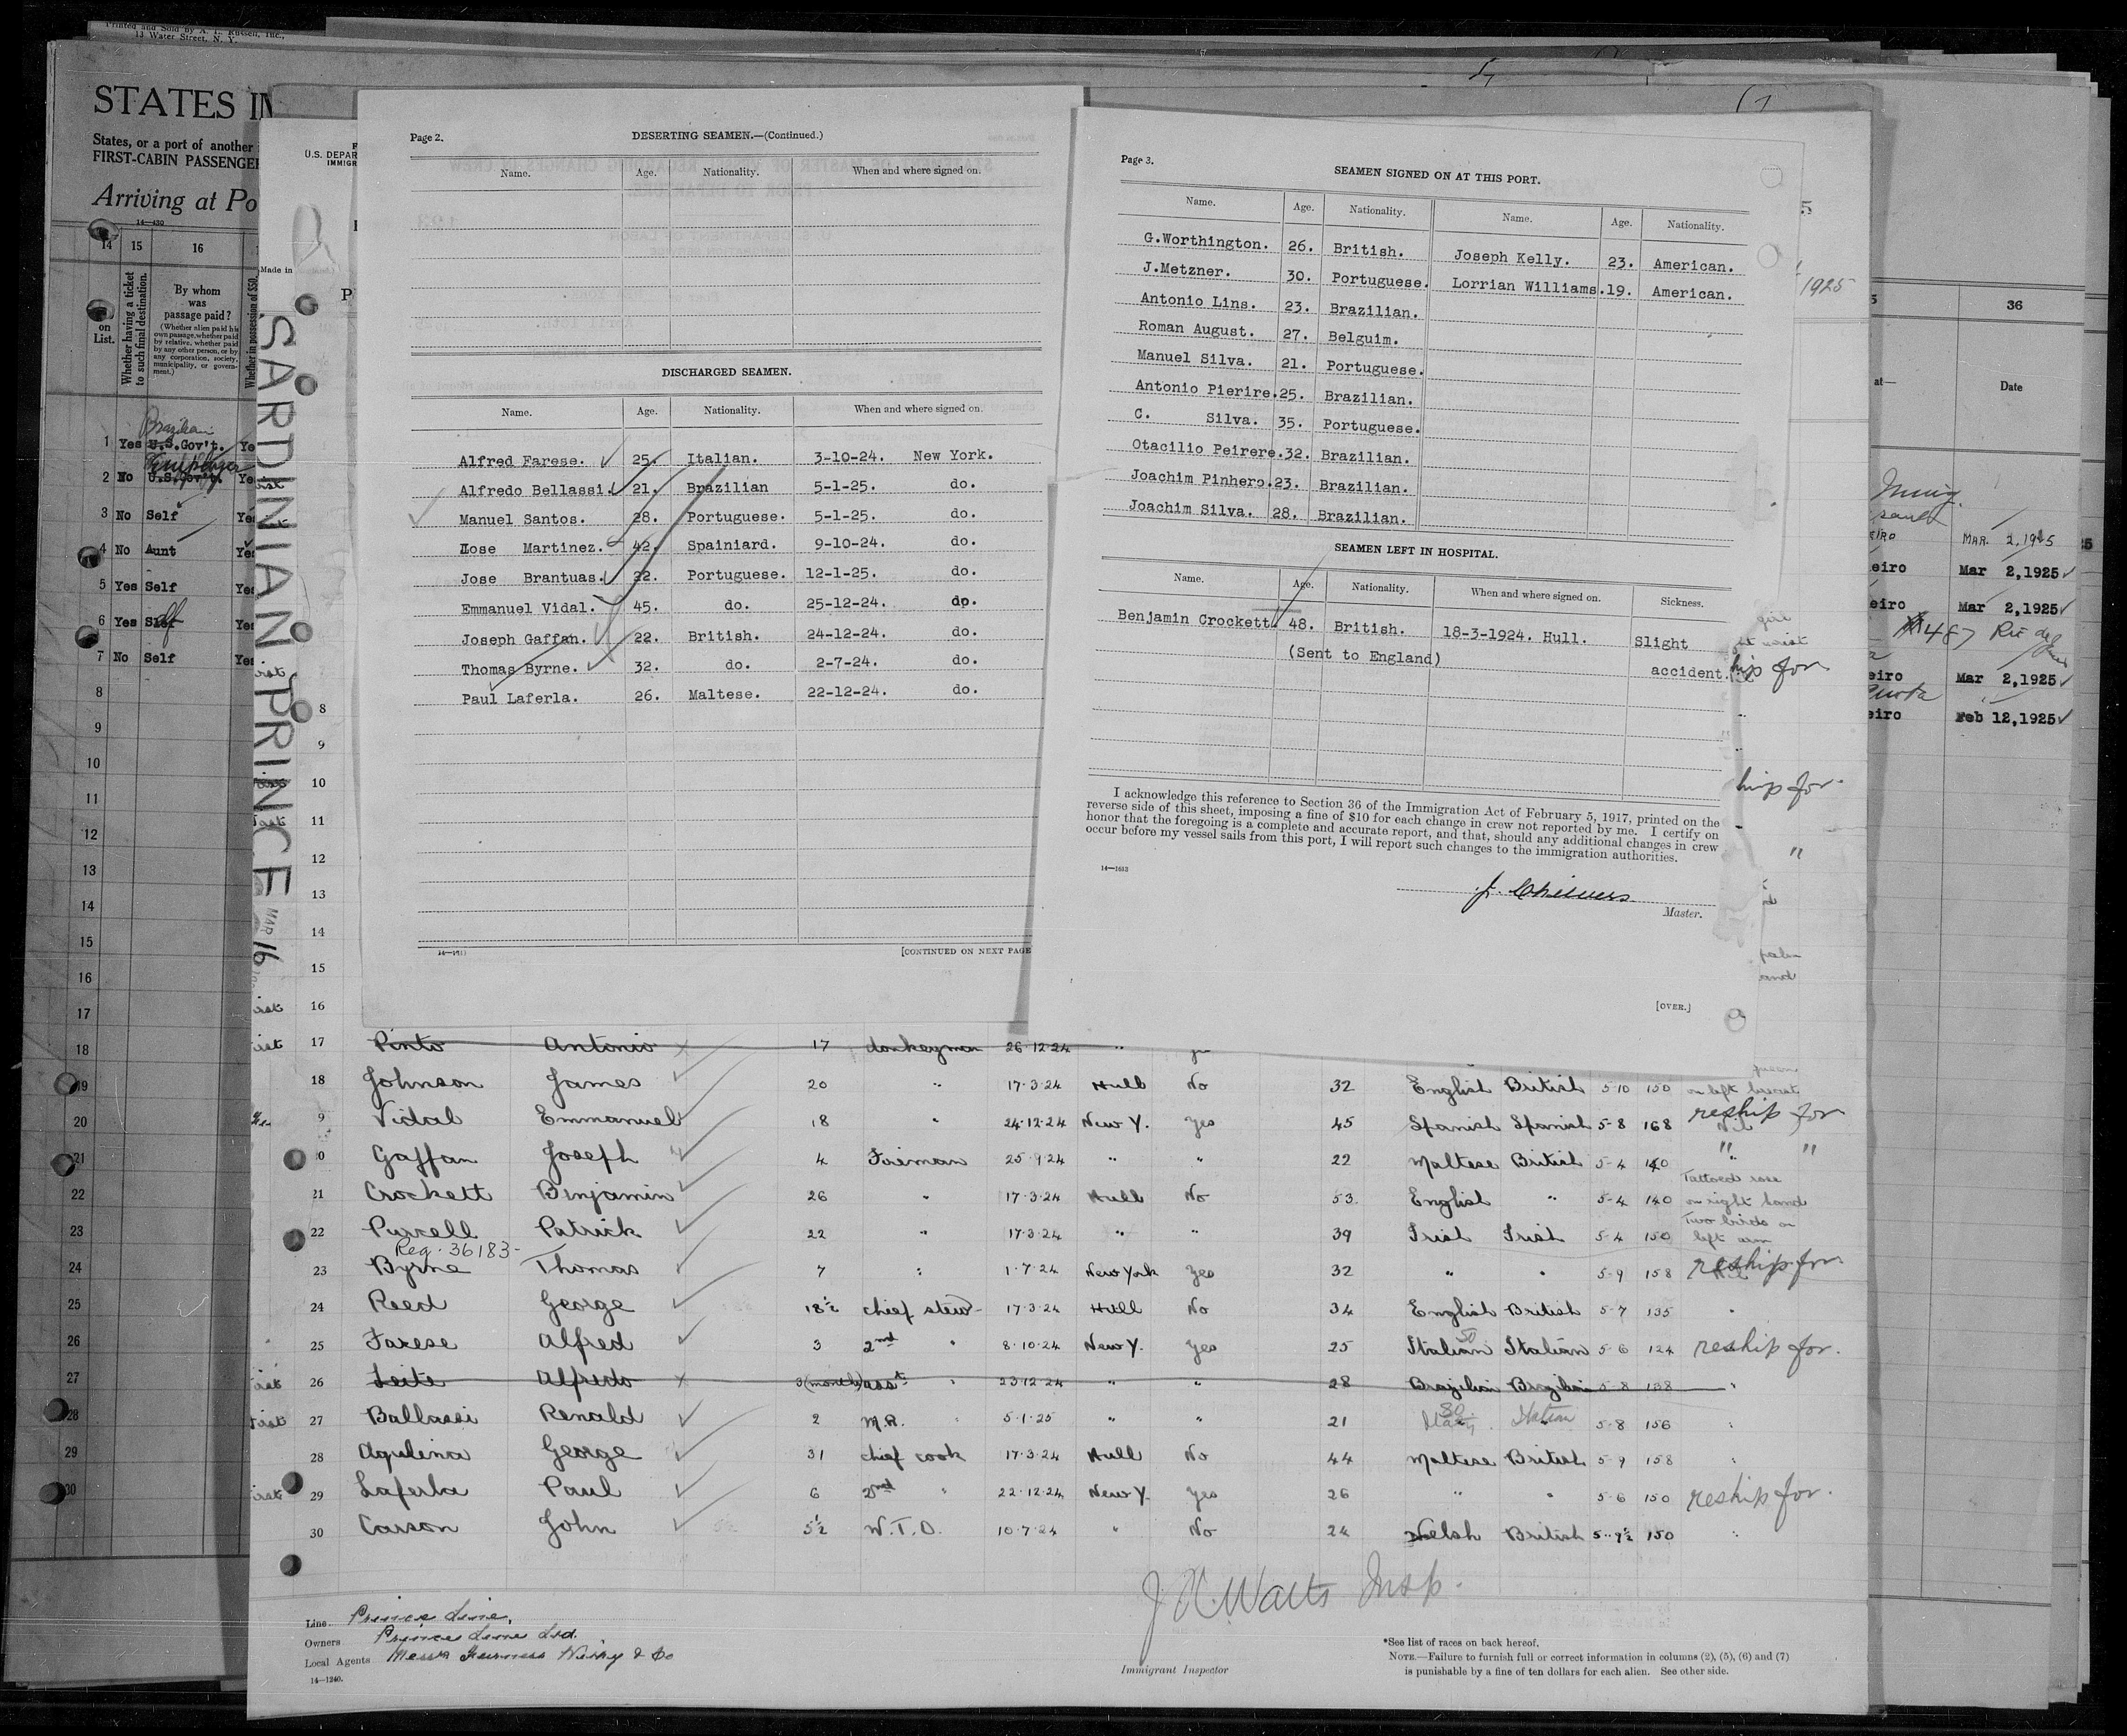 Printed and Sold by A. L. Russell, Inc.,
13 Water Street, N. Y.
STATES IM
States, or a port of another
FIRST-CABIN PASSENGER
Arriving at Po
14—430
14 15 16
on
List.
Whether having a ticket
to such final destination.
By whom
was
passage paid?
(Whether alien paid his
own passage, whether paid
by relative, whether paid
by any other person, or by
any corporation, society,
municipality, or govern-
ment.)
Whether in possession of $50,
Brazilian
1 Yes U.S.Gov't. Ye
2 No U.S.Gov't. Ye
3 No Self Yes
4 No Aunt Yes
5 Yes Self Yes
6 Yes Self Yes
7 No Self Yes
8
9
10
11
12
13
14
15
16
17
18
19
20
21
22
23
24
25
26
27
28
29
30
U.S. DEPAR
IMMIGR
Made in
SARDINIAN PRINCE
MAR 16
Page 2.
DESERTING SEAMEN.—(Continued.)
Name. Age. Nationality. When and where signed on.
DISCHARGED SEAMEN.
Name. Age. Nationality. When and where signed on.
Alfred Farese. 25. Italian. 3-10-24. New York.
Alfredo Bellassi. 21. Brazilian 5-1-25. do.
Manuel Santos. 28. Portuguese. 5-1-25. do.
Jose Martinez. 42. Spainiard. 9-10-24. do.
Jose Brantuas. 22. Portuguese. 12-1-25. do.
Emmanuel Vidal. 45. do. 25-12-24. do.
Joseph Gaffan. 22. British. 24-12-24. do.
Thomas Byrne. 32. do. 2-7-24. do.
Paul Laferla. 26. Maltese. 22-12-24. do.
14—1613
[CONTINUED ON NEXT PAGE
Page 3.
SEAMEN SIGNED ON AT THIS PORT.
Name. Age. Nationality. Name. Age. Nationality.
G.Worthington. 26. British. Joseph Kelly. 23. American.
J.Metzner. 30. Portuguese. Lorrian Williams. 19. American.
Antonio Lins. 23. Brazilian.
Roman August. 27. Belguim.
Manuel Silva. 21. Portuguese.
Antonio Pierire. 25. Brazilian.
C. Silva. 35. Portuguese.
Otacilio Peirere. 32. Brazilian.
Joachim Pinhero. 23. Brazilian.
Joachim Silva. 28. Brazilian.
SEAMEN LEFT IN HOSPITAL.
Name. Age. Nationality. When and where signed on. Sickness.
Benjamin Crockett 48. British. 18-3-1924. Hull. Slight
(Sent to England) accident.
I acknowledge this reference to Section 36 of the Immigration Act of February 5, 1917, printed on the
reverse side of this sheet, imposing a fine of $10 for each change in crew not reported by me. I certify on
honor that the foregoing is a complete and accurate report, and that, should any additional changes in crew
occur before my vessel sails from this port, I will report such changes to the immigration authorities.
14—1613
J. Chievers
Master.
[OVER.]
1925
36
at—
Date
MAR. 2,1925
eiro Mar 2,1925
eiro Mar 2,1925
487 Rio de
eiro Mar 2,1925
eiro Feb 12,1925
ship for
ship for
"
8
9
10
11
12
13
14
15
16
17 Pinto Antonio 17 donkeyman 26.12.24 "
18 Johnson James 20 " 17.3.24 Hull No 32 English British 5-10 150 on left breast
9 Vidal Emmanuel 18 " 24.12.24 New Y. Yes 45 Spanish Spanish 5-8 168 reship for
0 Gaffan Joseph 4 Fireman 25.9.24 " " 22 Maltese British 5-4 140 " "
21 Crockett Binjamin 26 " 17.3.24 Hull No 53 English " 5-4 140 Tattooed rose on right hand
22 Purcell Patrick 22 " 17.3.24 " " 39 Irish Irish 5-4 150 Two birds on left arm
Reg. 36183-
23 Byrne Thomas 7 " 1.7.24 New York Yes 32 " " 5-9 158 reship for
24 Reed George 18½ chief stew- 17.3.24 Hull No 34 English British 5-7 135 "
25 Farese Alfred 3 2nd " 8.10.24 New Y. Yes 25 Italian Italian 5-6 124 reship for.
26 Leite Alfredo 3(months) asst " 23.12.24 " " 28 Brazilian Brazilian 5-8 138 "
27 Ballassi Renald 2 M.R. " 5.1.25 " " 21 Italian 5-8 156 "
28 Aquilina George 31 chief cook 17.3.24 Hull No 44 Maltese British 5-9 158 "
29 Laferla Paul 6 2nd " 22.12.24 New Y. Yes 26 " " 5-6 150 reship for.
30 Carson John 5½ W.T.O. 10.7.24 " No 24 Welsh British 5-9½ 150 "
J. Watts Insp.
Immigrant Inspector
Line Prince Line.
Owners Prince Line Ltd.
Local Agents Messrs Furness Withy & Co
14—1240.
*See list of races on back hereof.
NOTE.—Failure to furnish full or correct information in columns (2), (5), (6) and (7)
is punishable by a fine of ten dollars for each alien. See other side.